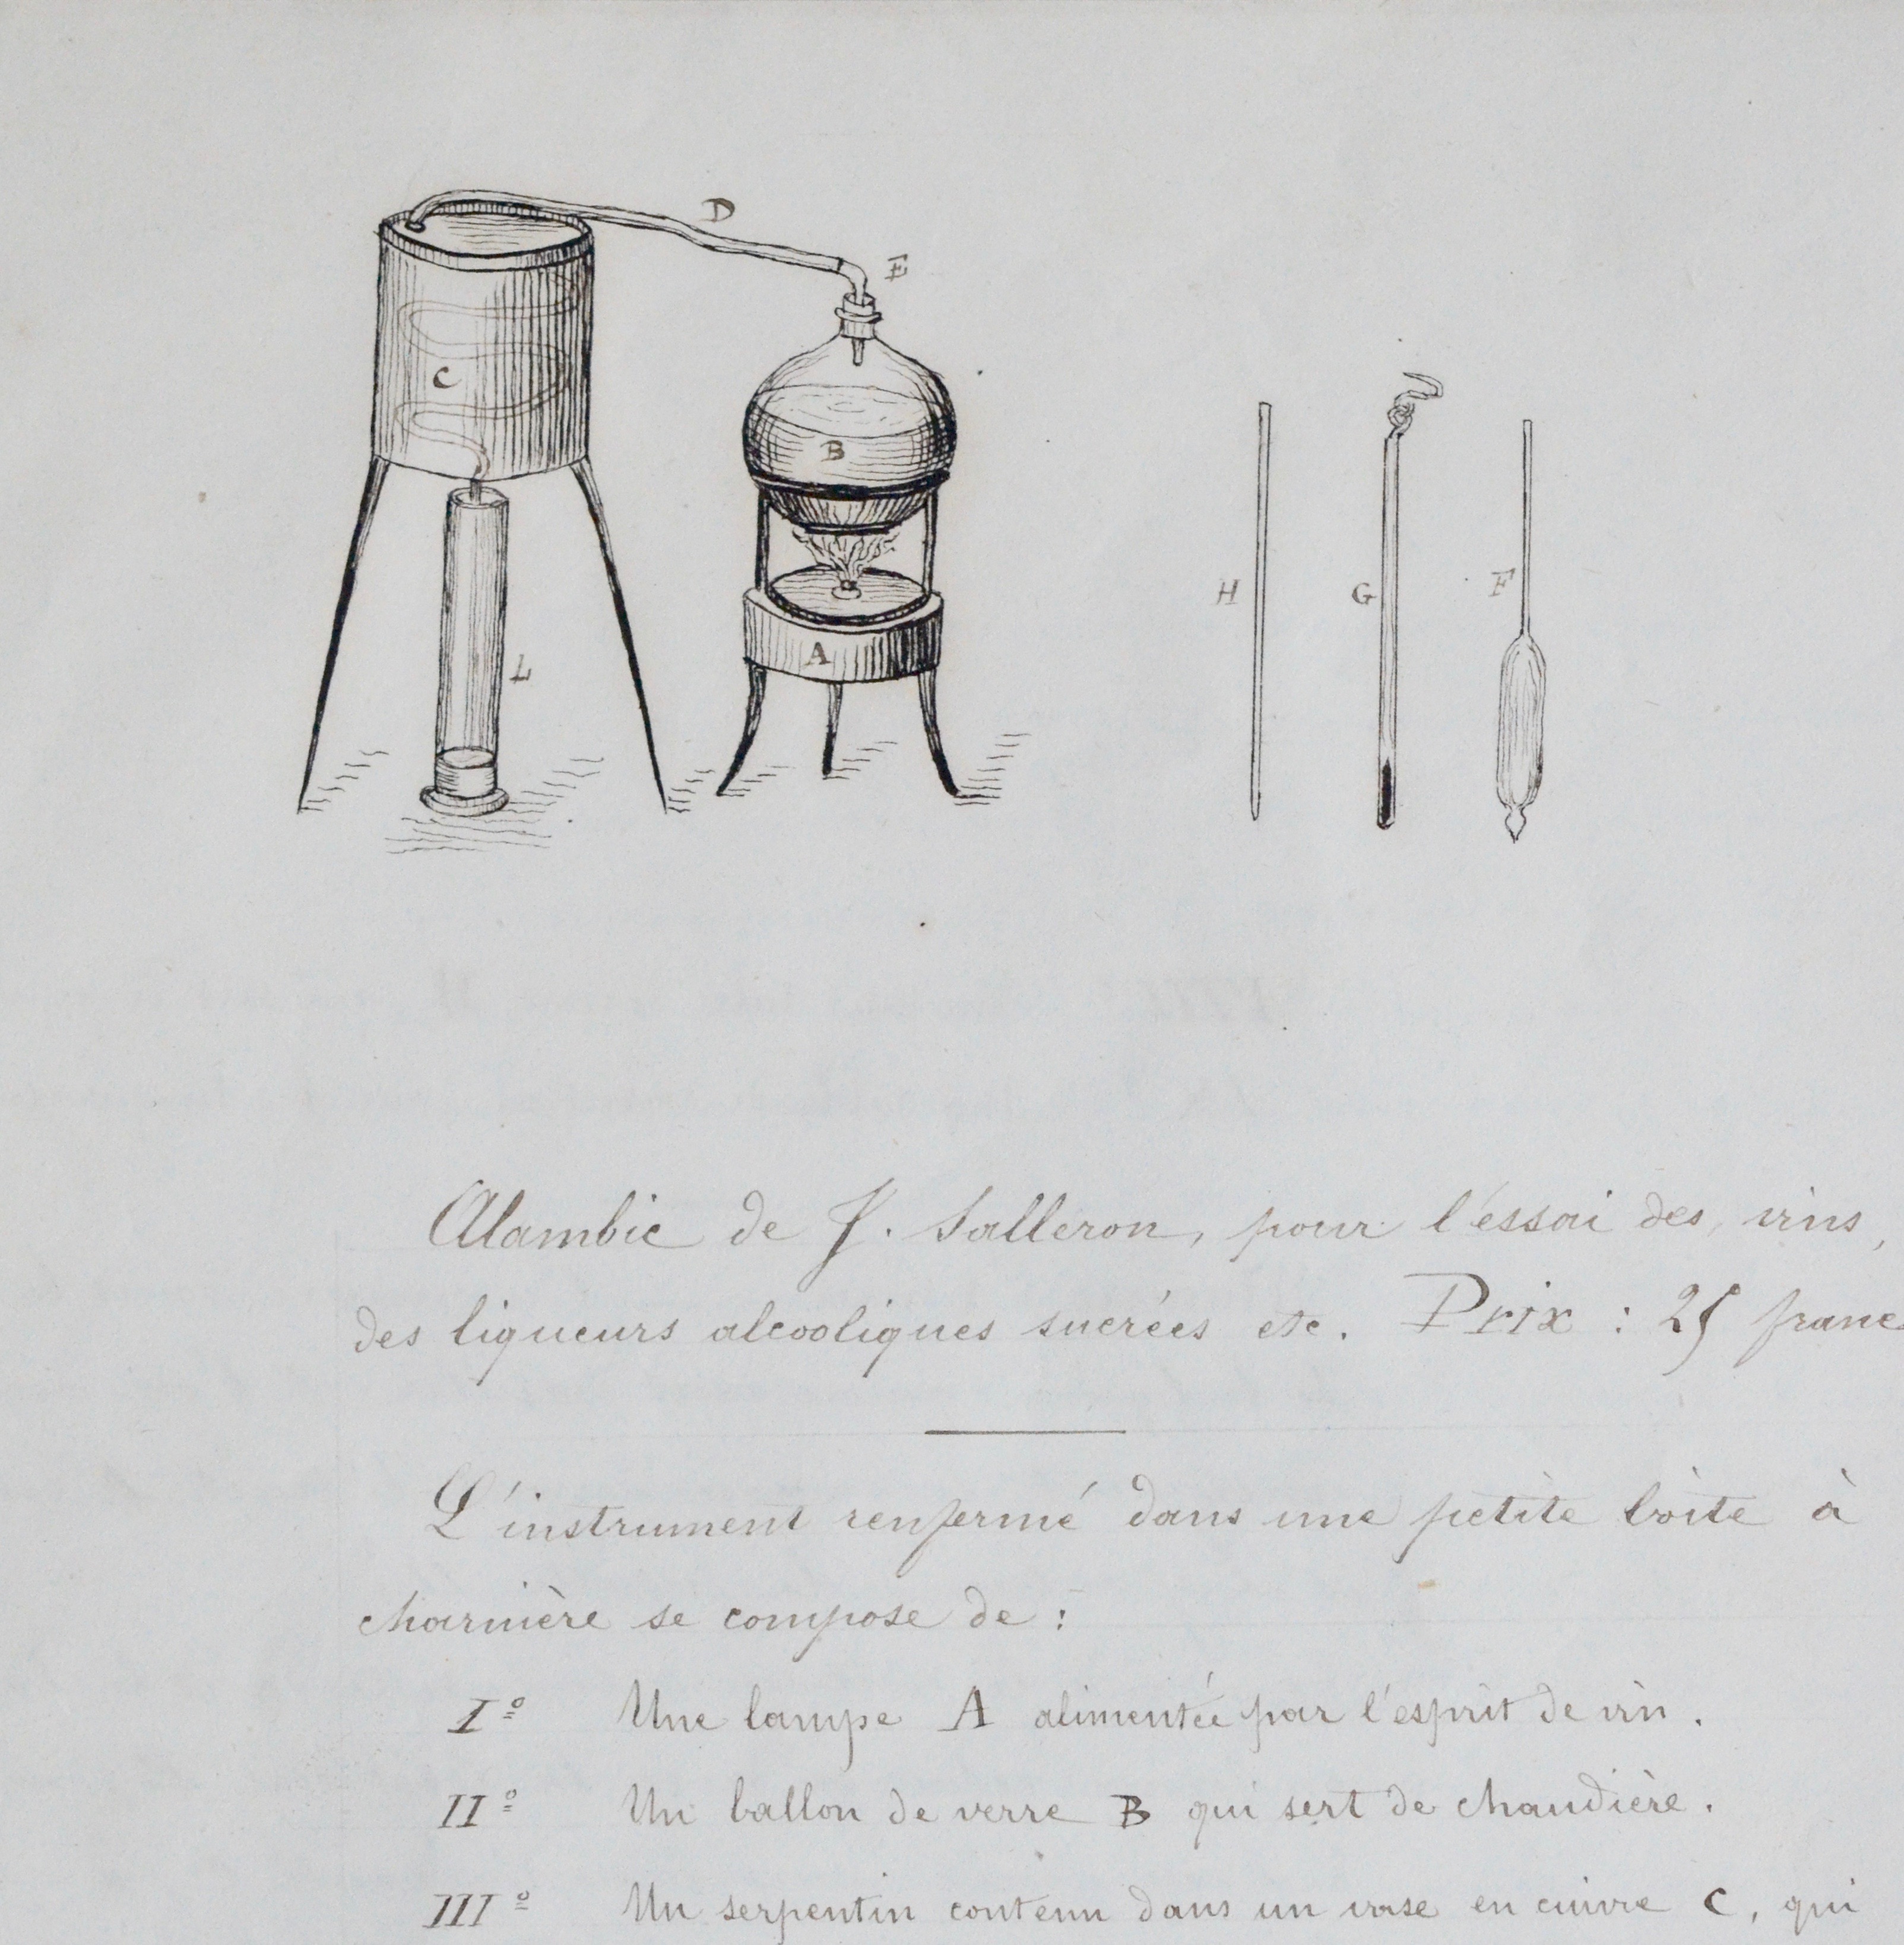 D
E
C
B
H
G
F
L
A
Alambic de J. Salleron, pour l'éssai des vins,
des liqueurs alcooliques sucrées etc. Prix : 25 franc
L'instrument renfermé dans une petite boite à
charnière se compose de :
Iº Une lampe A alimentée par l'esprit de vin.
IIº Un ballon de verre B qui sert de chaudière.
IIIº Un serpentin contenu dans un vase en cuivre C, qui